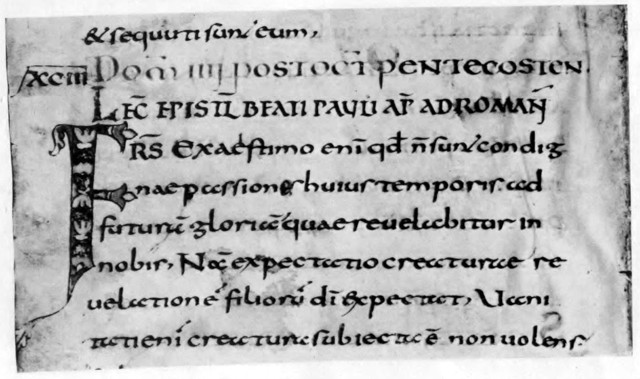 & sequuti sunt eum,
XCIII DOM̄ IIII POST OCT̄ PENTECOSTEN.
LEC̄ EPISTL̄ BEATI PAULI AP̄ AD ROMAN̄
FRS̄ Exaestimo enī qd̄ n̄ sunt condig
nae passiones huius temporis ad
futurā gloriā quae reuelabitur in
nobis, Nā expectatio creaturae re
uelationē filiorū dī expectat, Uani
tati enī creatura subiecta ē non uolens